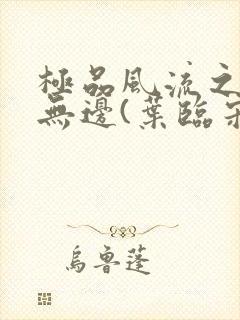 極品風流之
無邊(葉臨
烏魯蓬